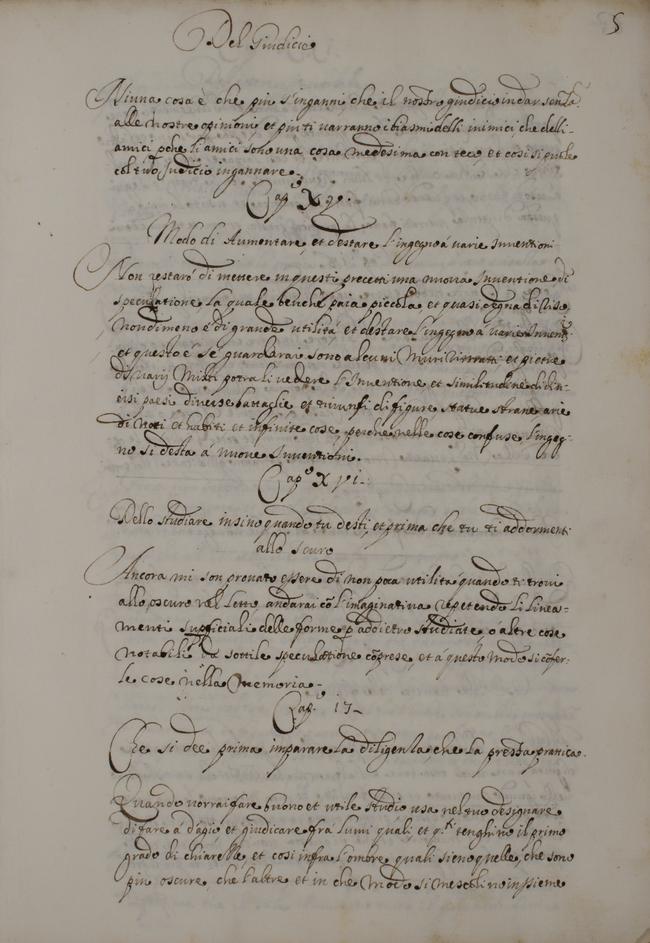 5
Del Giudicio
Niuna cosa è che più s'inganni, che il nostro giudicio in dar senza
alle nostre opinioni et più ti varranno i biasmi delli inimici che delli
amici pche li amici sono una cosa medesima con teco et così si puole
col tuo Judicio ingannare.
Cap.º XV.
Modo di Aumentare, et destare l'ingegno à varie Inventioni
Non restarò di mettere in questi precetti una nuova Inventione di
speculatione la quale benche paia piccola et quasi degna di riso
Nondimeno è di grande utilità et destare l'ingegno à varie Inventi
et questo è se guarderai sono alcuni Muri et pietre
di varij Misti potrali vedere l'Inventione et similitudine di di-
versi paesi diverse battaglie et trivunfi di figure statue strane arie
di Volti et habiti et infinite cose, perche nelle cose confuse l'inge-
no si desta à nuove Inventioni.
Cap.º XVi.
Dello studiare insino quando tu desti, et prima che tu ti addormenti
allo scuro
Ancora mi son provato essere di non poca utilità quando ti trovi
allo oscuro nel letto, andarai cō l'imaginativa repetendo li linea-
menti supficiali delle forme p addietro studiate, ò altre cose
notabili da sottile speculatione cōprese, et à questo modo si cōfer-
le cose nella memoria.
Cap.º 17
Che si dee prima imparare la diligenza, che la presta pratica.
Quando vorrai fare buono et utile studio usa nel tuo designare
di fare à d'agio et giudicare frà lumi quali et qti tenghino il primo
grado di chiarezze et così infra l'ombre quali sieno quelle, che sono
più oscure che l'altre et in che modo si mescolino insieme